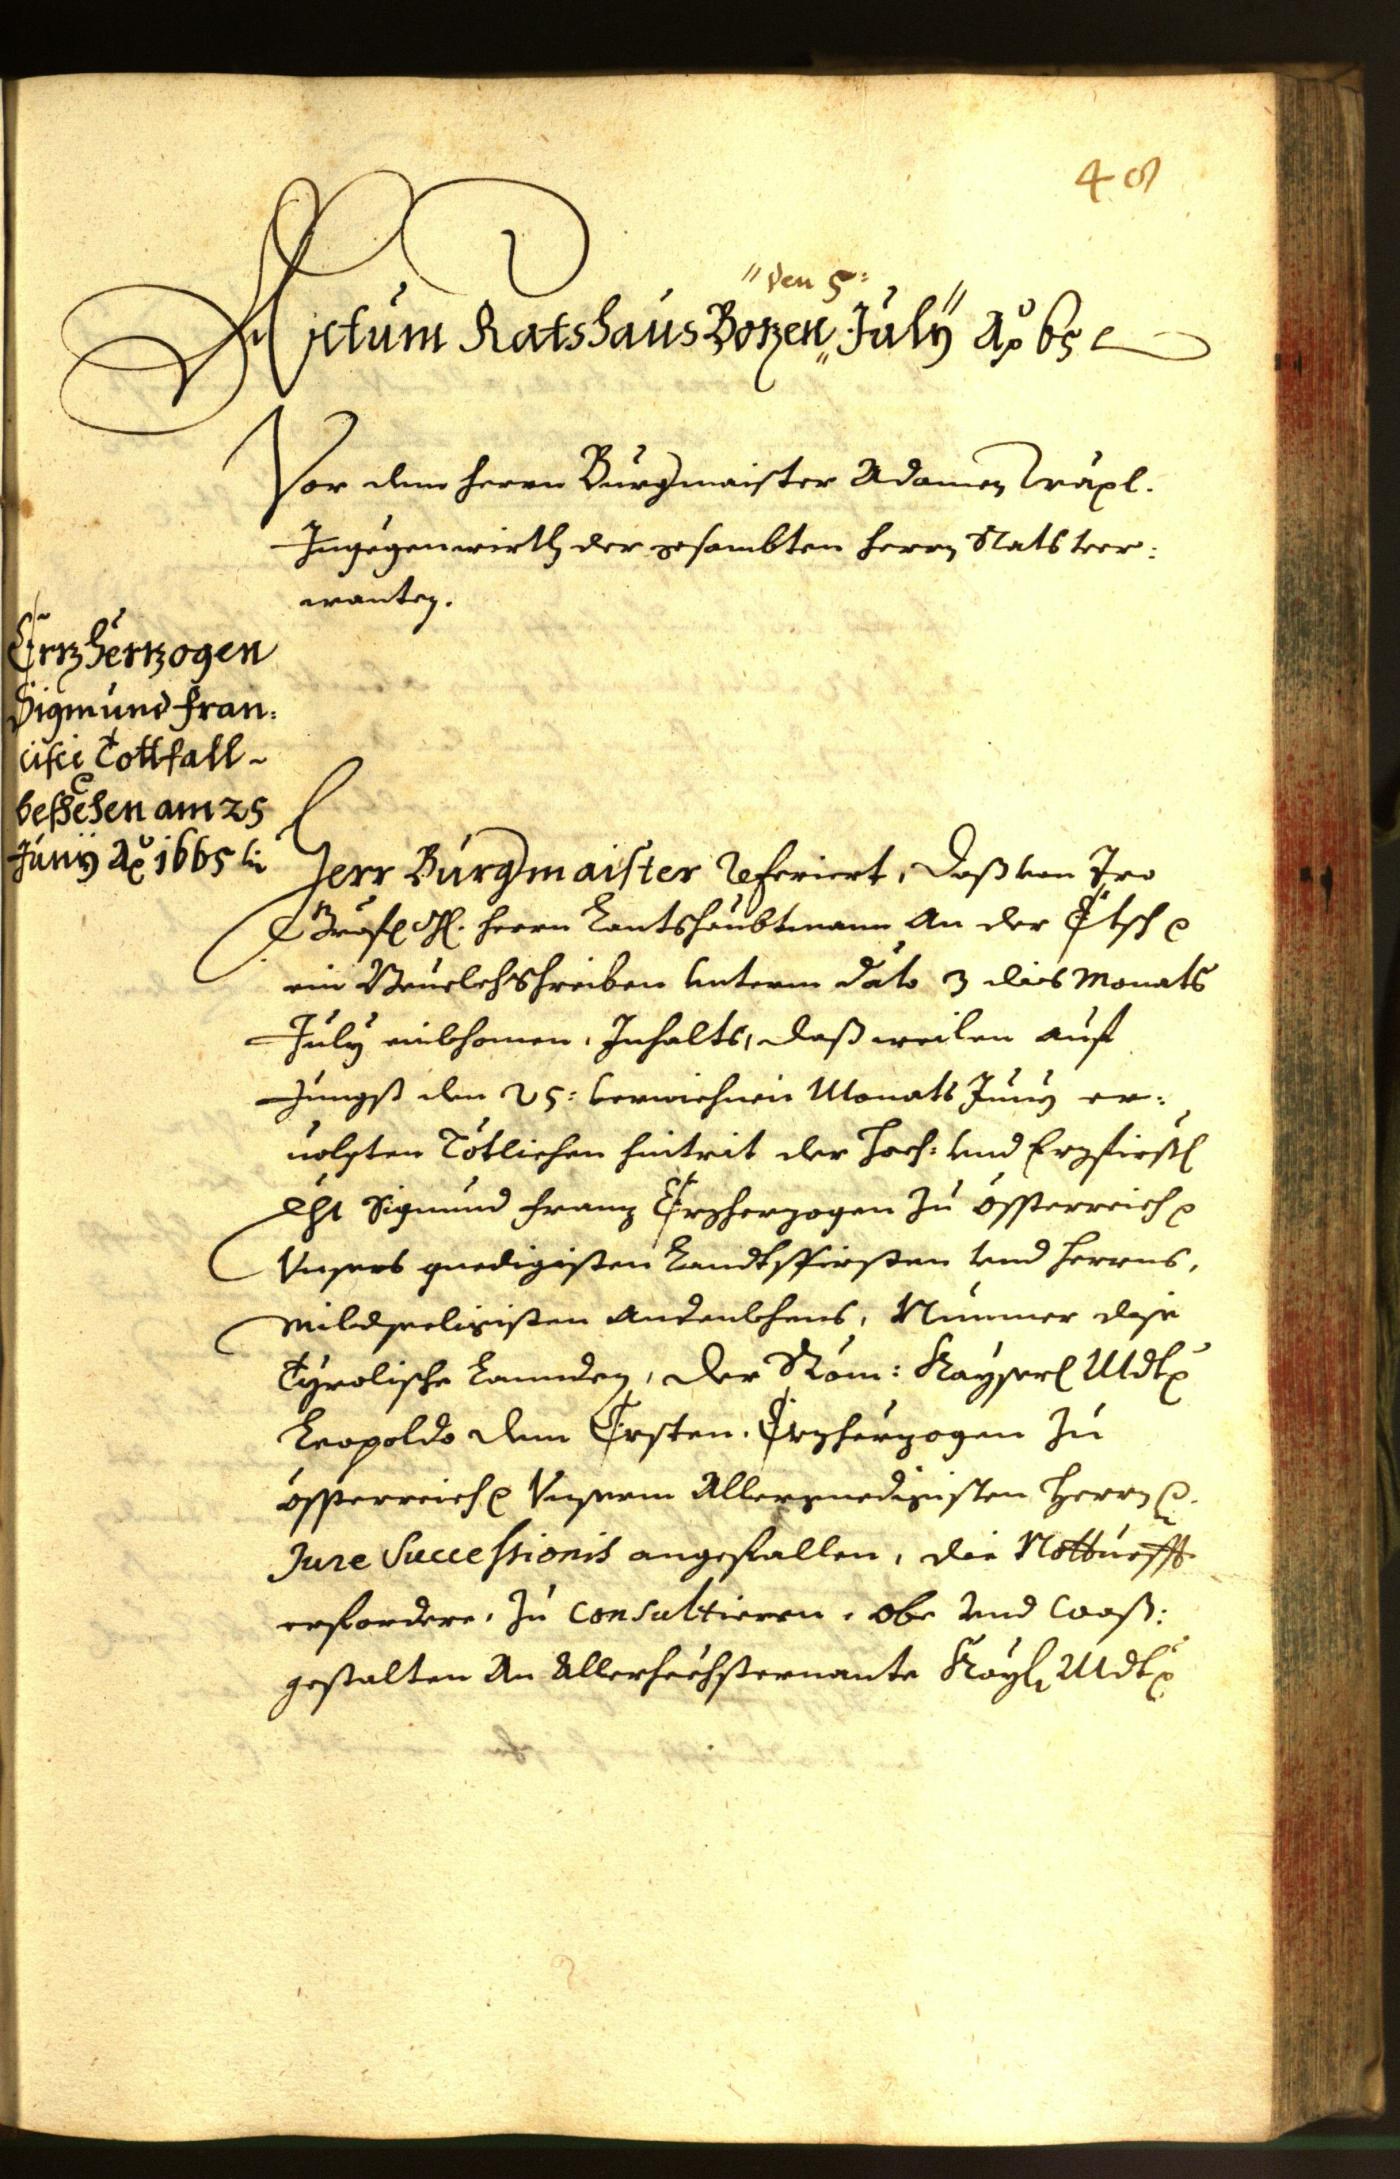 48
"den 5:
Actum Ratshaus Bozen July Ao 65
Vor dem herrn Burgmaister Adamen Träxl.
Ingegenwirth der gesambten herrn Rats ver:
wanten.
Erzherzogen
Sigmund Fran:
cisci Tottfall
beschehen am 25
Juny Ao 1665
Herr Burgmaister referiert, daß von Iro
Gräfl. herrn Lantshaubtmann an der Etsch
ein Beuelchschreiben unterm dato 3 dies Monats
July einkhomen, Inhalts, daß weilen auf
Jungst den 25: verwichnen Monats Juny er:
uolgten Tötlichen hintrit der Hoch: und Erzfürstl
Dht Sigmund Franz Erzherzogen zu össterreich
Unsers gnedigisten Landtsfirsten und herrns,
mildseeligisten Andenkhens, Nunmer dise
Tyrolische Lannden, der Röm: Kayserl Mdt
Leopoldo dem Ersten. Erzherzogen zu
össterreich Unserm Allergnedigisten Herrn
Jure Successionis angefallen, die Notturfft
erfordere, zu Consultieren, obe und waß:
gestalten An Allerhechsternante Kayl Mdt